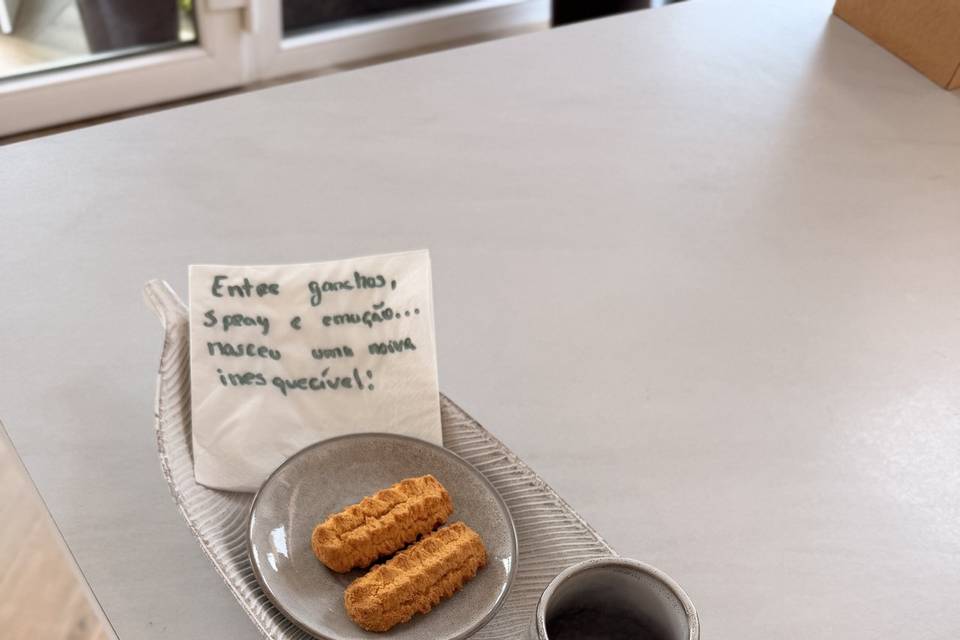 Entre ganchos,
Spray e emoção...
nasceu uma noiva
inesquecível!